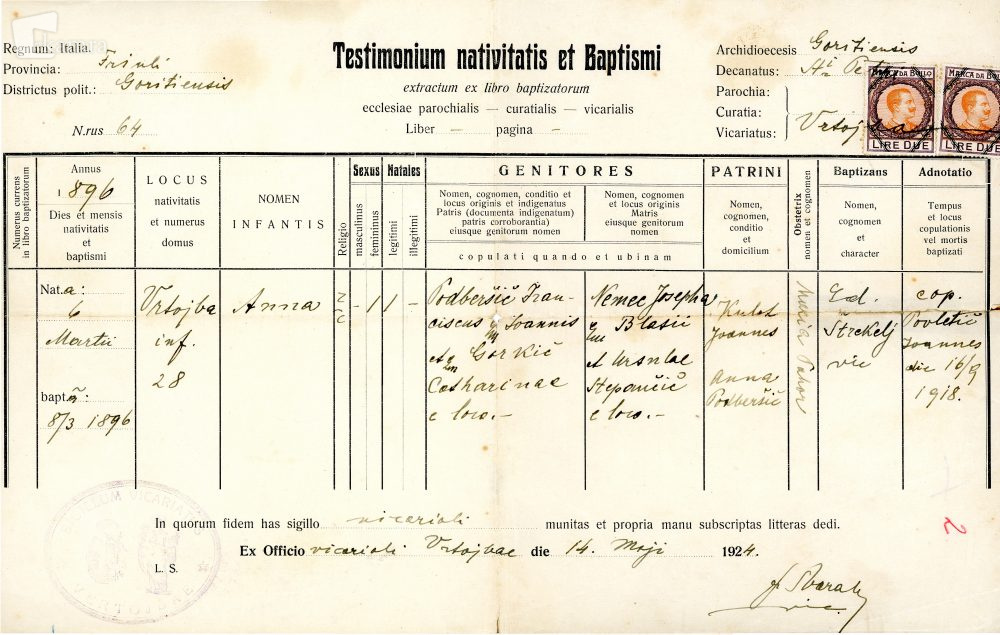 Regnum: Italia.
Provincia: Friuli
Districtus polit.: Goritiensis
N.rus 64
Testimonium nativitatis et Baptismi
extractum ex libro baptizatorum
ecclesiae parochialis — curatialis — vicarialis
Liber — pagina —
Archidioecesis Goritiensis
Decanatus: Sti Petri
Parochia:
Curatia:
Vicariatus: Vrtojba
MARCA DA BOLLO
LIRE DUE
MARCA DA BOLLO
LIRE DUE
Numerus currens
in libro baptizatorum
Annus
1896
Dies et mensis
nativitatis
et
baptismi
LOCUS
nativitatis
et numerus
domus
NOMEN
INFANTIS
Religio
Sexus
masculinus
femininus
Natales
legitimi
illegitimi
GENITORES
Nomen, cognomen, conditio et
locus originis et indigenatus
Patris (documenta indigenatum
patris corroborantia)
eiusque genitorum nomen
Nomen, cognomen
et locus originis
Matris
eiusque genitorum
nomen
copulati quando et ubinam
PATRINI
Nomen,
cognomen,
conditio
et
domicilium
Obstetrix
nomen et cognomen
Baptizans
Nomen,
cognomen
et
character
Adnotatio
Tempus
et locus
copulationis
vel mortis
baptizati
Nat.a:
6
Martii
bapt.a:
8/3 1896
Vrtojba
inf.
28
Anna
- 1 1 -
Podberšič Fran-
ciscus Joannis
et Gorkič
Catharinae
e loco.-
Nemec Josepha
Blasii
et Ursulae
Stepančič
e loco.-
Kulot
Joannes
Anna
Podberšič
Maria Pahor
Ed.
Štrekelj
vic
cop.
Povletič
Joannes
die 16/9
1918.
2
SIGILLUM VICARIATUS
In quorum fidem has sigillo vicariali munitas et propria manu subscriptas litteras dedi.
Ex Officio vicariali Vrtojbae die 14. Maji 1924.
L. S.
vic.